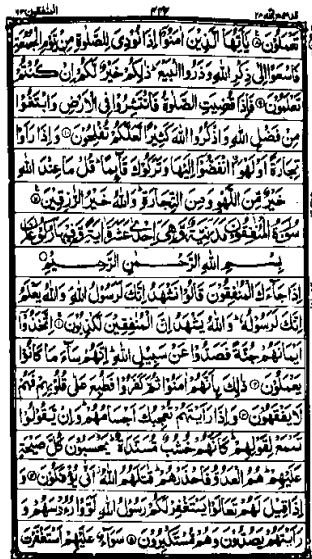 المنفقون ٦٣ ٤٤٣ قد سمع الله ٢٨
تَعْمَلُونَ ۝ يٰۤاَيُّهَا الَّذِيْنَ اٰمَنُوْۤا اِذَا نُوْدِيَ لِلصَّلٰوةِ مِنْ يَّوْمِ الْجُمُعَةِ
فَاسْعَوْا اِلٰى ذِكْرِ اللّٰهِ وَذَرُوا الْبَيْعَ ذٰلِكُمْ خَيْرٌ لَّكُمْ اِنْ كُنْتُمْ
تَعْلَمُوْنَ ۝ فَاِذَا قُضِيَتِ الصَّلٰوةُ فَانْتَشِرُوْا فِي الْاَرْضِ وَابْتَغُوْا
مِنْ فَضْلِ اللّٰهِ وَاذْكُرُوا اللّٰهَ كَثِيْرًا لَّعَلَّكُمْ تُفْلِحُوْنَ ۝ وَاِذَا رَاَوْا
تِجَارَةً اَوْ لَهْوَا ۨانْفَضُّوْۤا اِلَيْهَا وَتَرَكُوْكَ قَآئِمًا قُلْ مَا عِنْدَ اللّٰهِ
خَيْرٌ مِّنَ اللَّهْوِ وَمِنَ التِّجَارَةِ وَاللّٰهُ خَيْرُ الرّٰزِقِيْنَ ۝
سُوْرَةُ الْمُنٰفِقُوْنَ مَدَنِيَّةٌ وَّهِيَ اِحْدٰى عَشْرَةَ اٰيَةً وَّفِيْهَا رُكُوْعٰنِ
بِسْمِ اللّٰهِ الرَّحْمٰنِ الرَّحِيْمِ
اِذَا جَآءَكَ الْمُنٰفِقُوْنَ قَالُوْا نَشْهَدُ اِنَّكَ لَرَسُوْلُ اللّٰهِ وَاللّٰهُ يَعْلَمُ
اِنَّكَ لَرَسُوْلُهٗ وَاللّٰهُ يَشْهَدُ اِنَّ الْمُنٰفِقِيْنَ لَكٰذِبُوْنَ ۝ اِتَّخَذُوْۤا
اَيْمَانَهُمْ جُنَّةً فَصَدُّوْا عَنْ سَبِيْلِ اللّٰهِ اِنَّهُمْ سَآءَ مَا كَانُوْا
يَعْمَلُوْنَ ۝ ذٰلِكَ بِاَنَّهُمْ اٰمَنُوْا ثُمَّ كَفَرُوْا فَطُبِعَ عَلٰى قُلُوْبِهِمْ فَهُمْ
لَا يَفْقَهُوْنَ ۝ وَاِذَا رَاَيْتَهُمْ تُعْجِبُكَ اَجْسَامُهُمْ وَاِنْ يَّقُوْلُوْا
تَسْمَعْ لِقَوْلِهِمْ كَاَنَّهُمْ خُشُبٌ مُّسَنَّدَةٌ يَحْسَبُوْنَ كُلَّ صَيْحَةٍ
عَلَيْهِمْ هُمُ الْعَدُوُّ فَاحْذَرْهُمْ قٰتَلَهُمُ اللّٰهُ اَنّٰى يُؤْفَكُوْنَ ۝ وَ
اِذَا قِيْلَ لَهُمْ تَعَالَوْا يَسْتَغْفِرْ لَكُمْ رَسُوْلُ اللّٰهِ لَوَّوْا رُءُوْسَهُمْ وَ
رَاَيْتَهُمْ يَصُدُّوْنَ وَهُمْ مُّسْتَكْبِرُوْنَ ۝ سَوَآءٌ عَلَيْهِمْ اَسْتَغْفَرْتَ